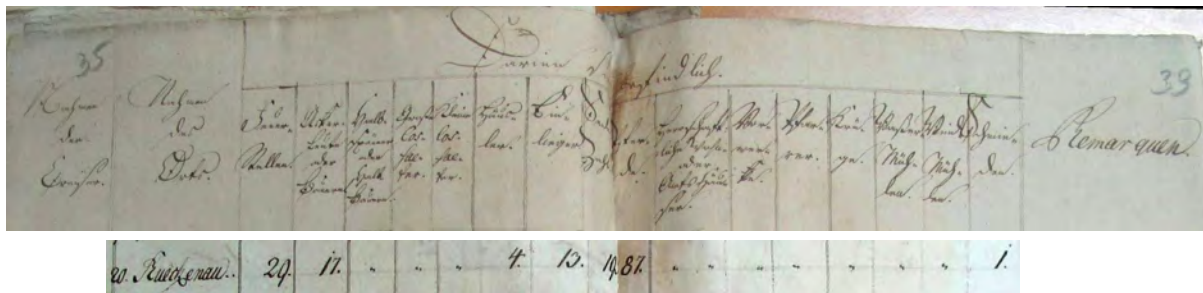 35
39
Darinn
befindlich.
Nahmen der Creyser.
Nahmen des Orts.
Feuer-Stellen.
Acker-Leute oder Bauern
Halb-Spänner oder Halb Bauern.
Groß Cos-sae-ter.
Klein Cos-sae-ter.
Häus-ler.
Ein-lieger
Pfer-de.
Vor-wer-ke.
Pfar-rer.
Krü-ge.
Waßer Müh-len.
Wind Müh-len.
Schmie-den.
Remarquen.
20. Rueckenau.. 29. 17. " " " 4. 13. 19. 87. " " " " " " " 1.